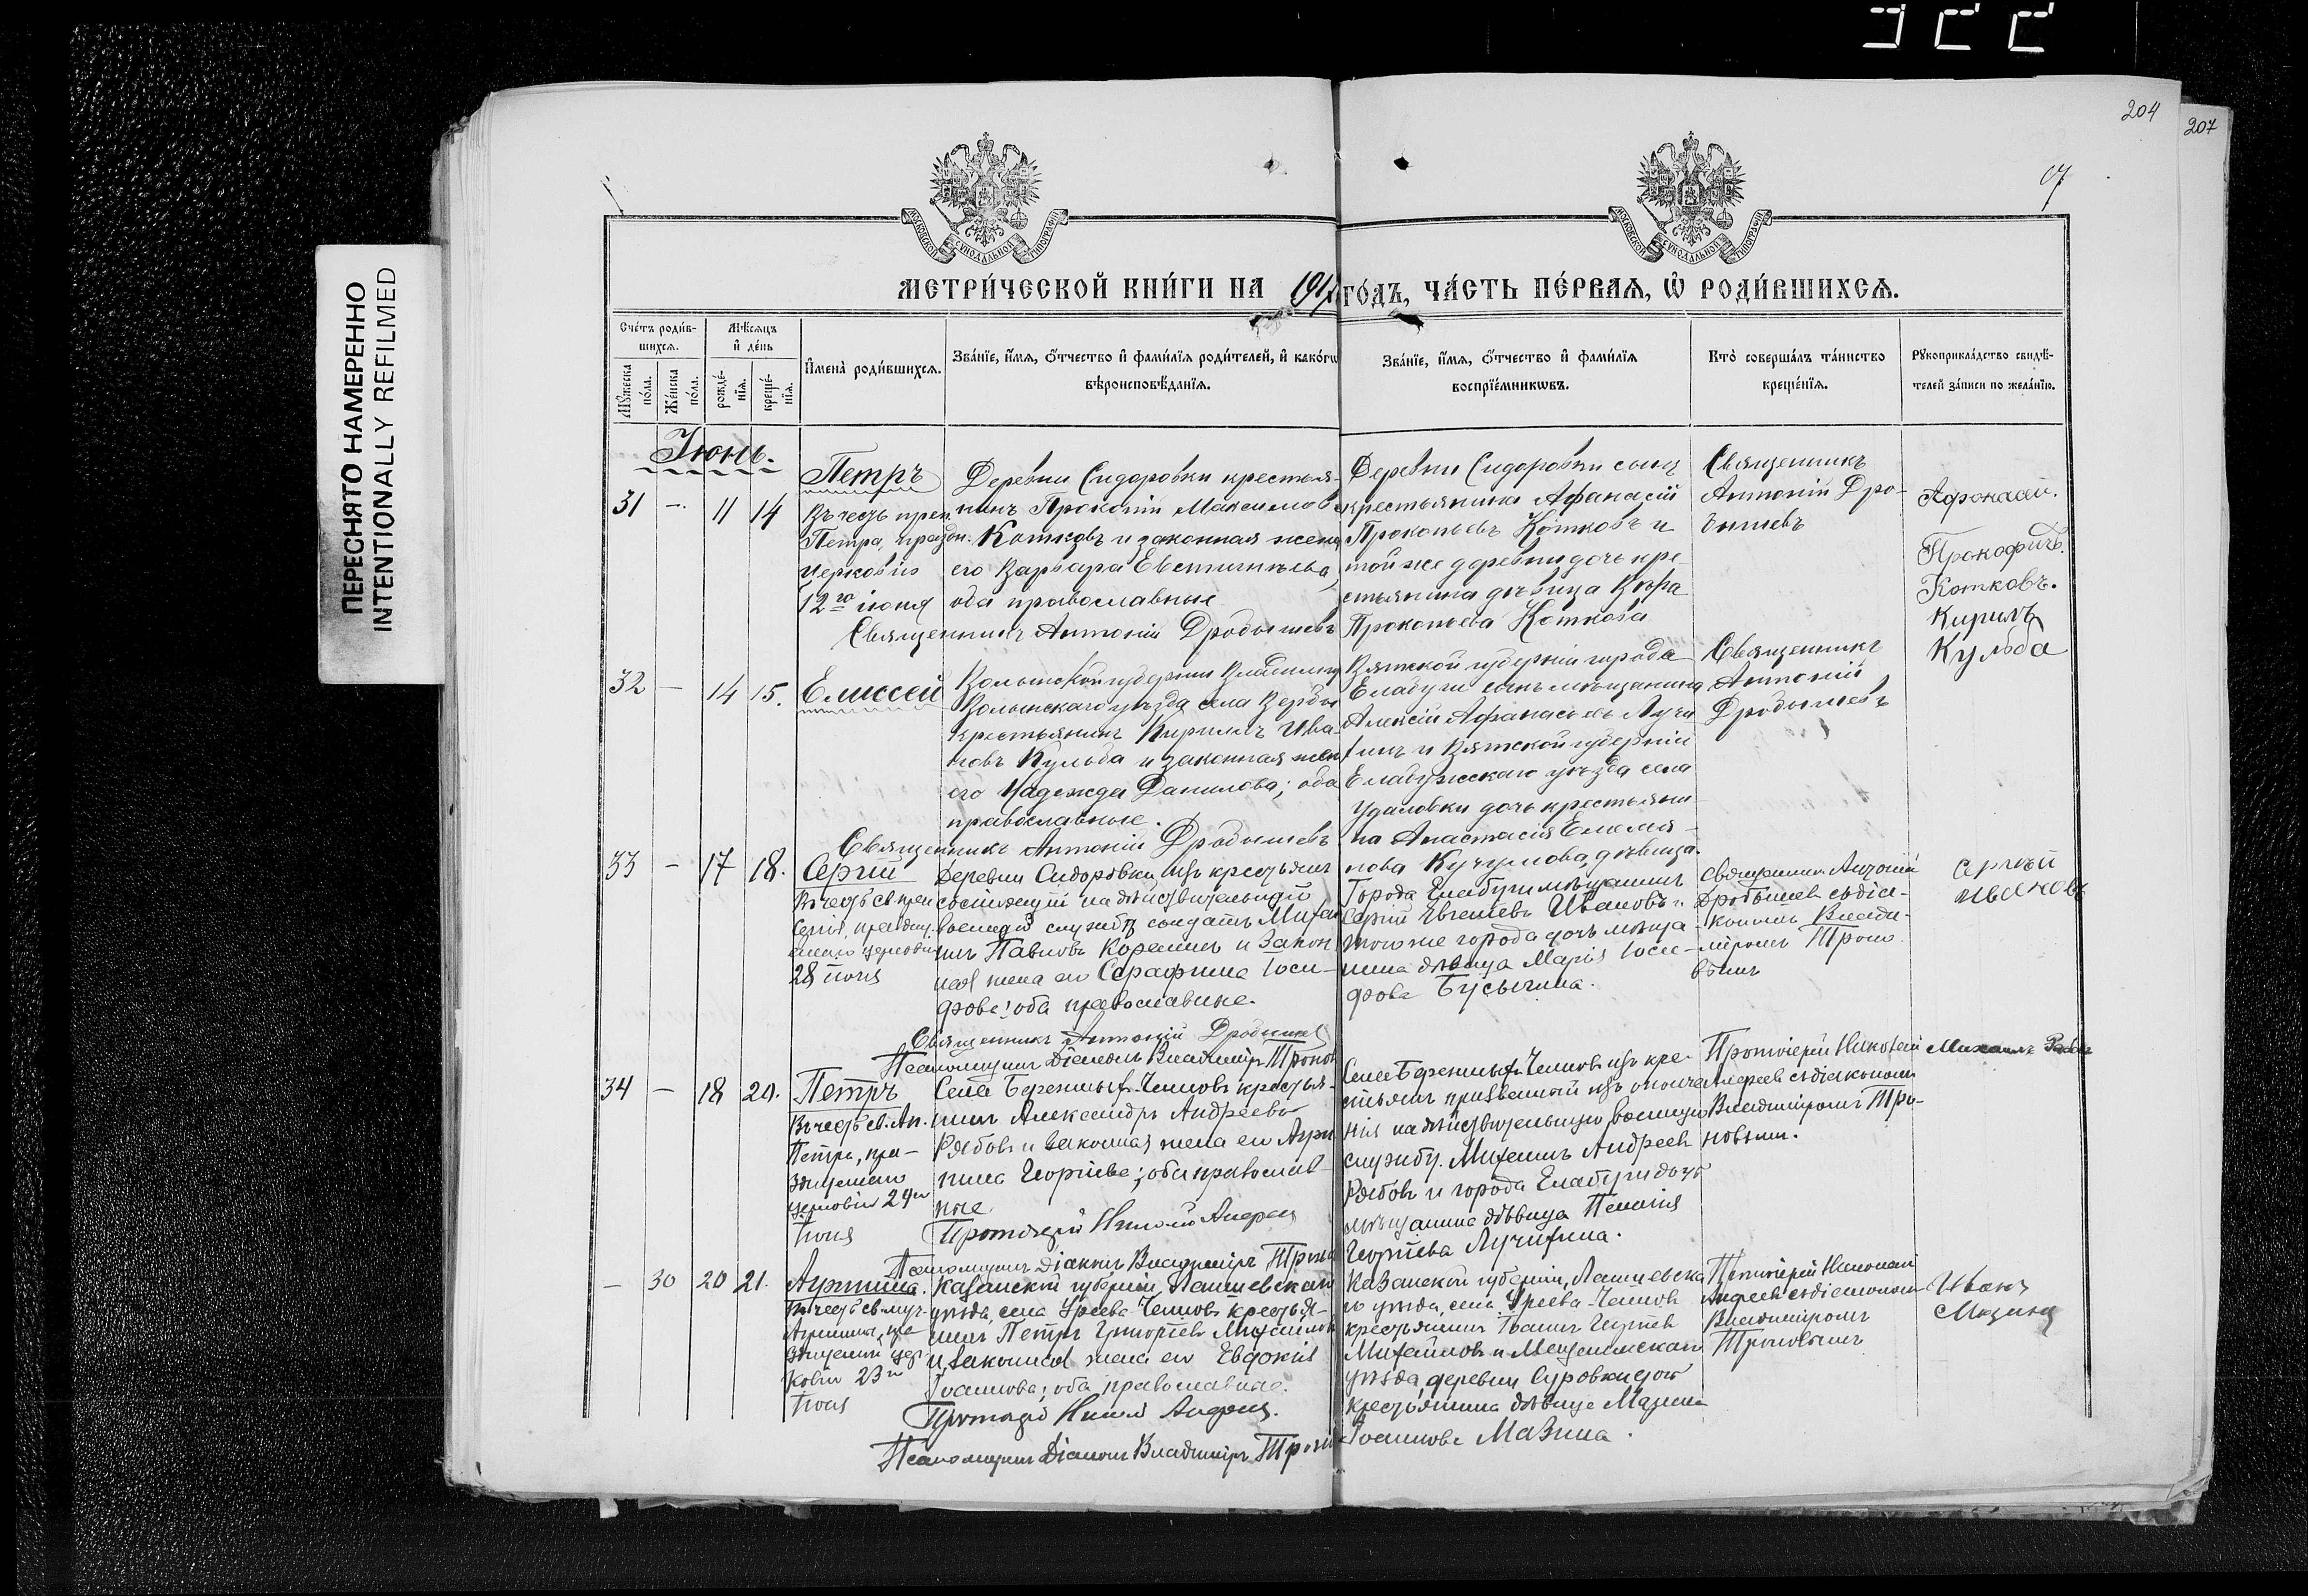 204
207
ПЕРЕСНЯТО НАМЕРЕННО
INTENTIONALLY REFILMED
МОСКОВСКОЙ СѴНОДАЛЬНОЙ ТИПОГРАФІИ
МОСКОВСКОЙ СѴНОДАЛЬНОЙ ТИПОГРАФІИ
МЕТРИ́ЧЕСКОЙ КНИ́ГИ НА 1917 ГО́ДЪ, ЧА́СТЬ ПЕ́РВАЯ, Ѡ РОДИ́ВШИХСЯ.
Сче́тъ роди́в-
шихся.
Мѣ́сяцъ
и де́нь
Мꙋ́жеска
по́ла.
Же́нска
по́ла.
рожде́-
нїя.
креще́-
нїя.
Имена̀ роди́вшихся.
Зва́нїе, и́мя, ѻ́тчество и фами́лїя роди́телей, и како́гѡ
вѣроисповѣ́данїя.
Зва́нїе, и́мя, ѻ́тчество и фами́лїя
воспрїе́мникѡвъ.
Кто̀ соверша́лъ та́инство
креще́нїя.
Рꙋкоприкла́дство свидѣ́-
телей за́писи по жела́нїю.
Іюнь.
31 - 11 14
Петръ
Въ честь преп.
Петра, праздн.
церковію
12го іюня
Деревни Сидоровки крестья-
нинъ Прокопій Максимов
Котковъ и законная жена
его Варвара Евстигнѣева,
оба православные
Священникъ Антоній Дробышевъ
Деревни Сидоровки сынъ
крестьянина Афанасій
Прокопьевъ Котковъ и
той же деревни дочь кре-
стьянина дѣвица Вѣра
Прокопьева Коткова
Священникъ
Антоній Дро-
бышевъ
Афонасій.
Прокофичъ.
Котковъ.
32 - 14 15.
Елиссей
Волынской губерніи Владиміро
Волынскаго уѣзда села Вербы
крестьянинъ Кириллъ Ива-
новъ Кульба и законная жен
его Надежда Данилова; оба
православные.
Священникъ Антоній Дробышевъ
Вятской губерніи города
Елабуги сынъ мѣщанина
Алексій Афанасьевъ Лучи
хинъ и Вятской губерніи
Елабужскаго уѣзда села
дочь крестьяни-
на Анастасія Емелья-
нова Кучумова, дѣвица.
Священникъ
Антоній
Дробышевъ
Кирилъ
Кульба
33 - 17 18.
Сергій
Въ честь св. преп
Сергія, праздну-
емаго церковію
28 іюня
Деревни Сидоровки изъ крестьян
состоящій на дѣйствительной
военной службѣ солдатъ Михаи
илъ Павловъ Корелинъ и закон
ная жена его Серафима Іоси-
фова; оба православные.
Священникъ Антоній Дробышев
Псаломщикъ Діаконъ Владиміръ Тронов
Города Елабуги мѣщанинъ
Сергій Евгеніевъ Ивановъ и
того же города дочь мѣща-
нина дѣвица Марія Іоси-
фова Бусыгина.
Священник Антоній
Дробышев съ діа-
кономъ Влади-
міромъ Троно-
вымъ
Сергѣй
Ивановъ
34 - 18 20.
Петръ
Въ честь св. Ап.
Петра, пра-
зднуемаго
церковію 29го
іюня
Села Бережныхъ-Челновъ крестья-
нинъ Александръ Андреевъ
Рябовъ и законная жена его Агри
пина Георгіева; оба православ-
ные.
Протоіерей Николай Андреев
Псаломщикъ Діаконъ Владиміръ Тронов
Села Бережныхъ-Челновъ изъ кре-
стьянъ призванный изъ ополче
нія на дѣйствительную военную
службу. Михаилъ Андреев
Рябовъ и города Елабуги дочь
мѣщанина дѣвица Пелагія
Георгіева Лучихина.
Протоіерей Николай
Андреев съ діакономъ
Владиміромъ Тро-
новымъ.
Михаилъ
- 30 20 21.
Агрипина.
Въ честь св. муч.
Агрипины, пра
зднуемой цер-
ковію 23го
іюня
Казанской губерніи, Лаишевскаго
уѣзда, села Урѣева-Челновъ крестья-
нинъ Петръ Григоріевъ Михайлов
и законная жена его Евдокія
Іоаннова; оба православные.
Протоіерей Николай Андреев.
Псаломщикъ Діаконъ Владиміръ Тронов
Казанской губерніи, Лаишевска
го уѣзда, села Урѣева-Челнов
крестьянинъ Іоаннъ
Михайловъ и Мензелинскаго
уѣзда, деревни Суровки дочь
крестьянина дѣвица
Іоаннова Мазина.
Протоіерей Николай
Андреев съ діакономъ
Владиміромъ
Троновымъ
Иванъ
Мазинъ